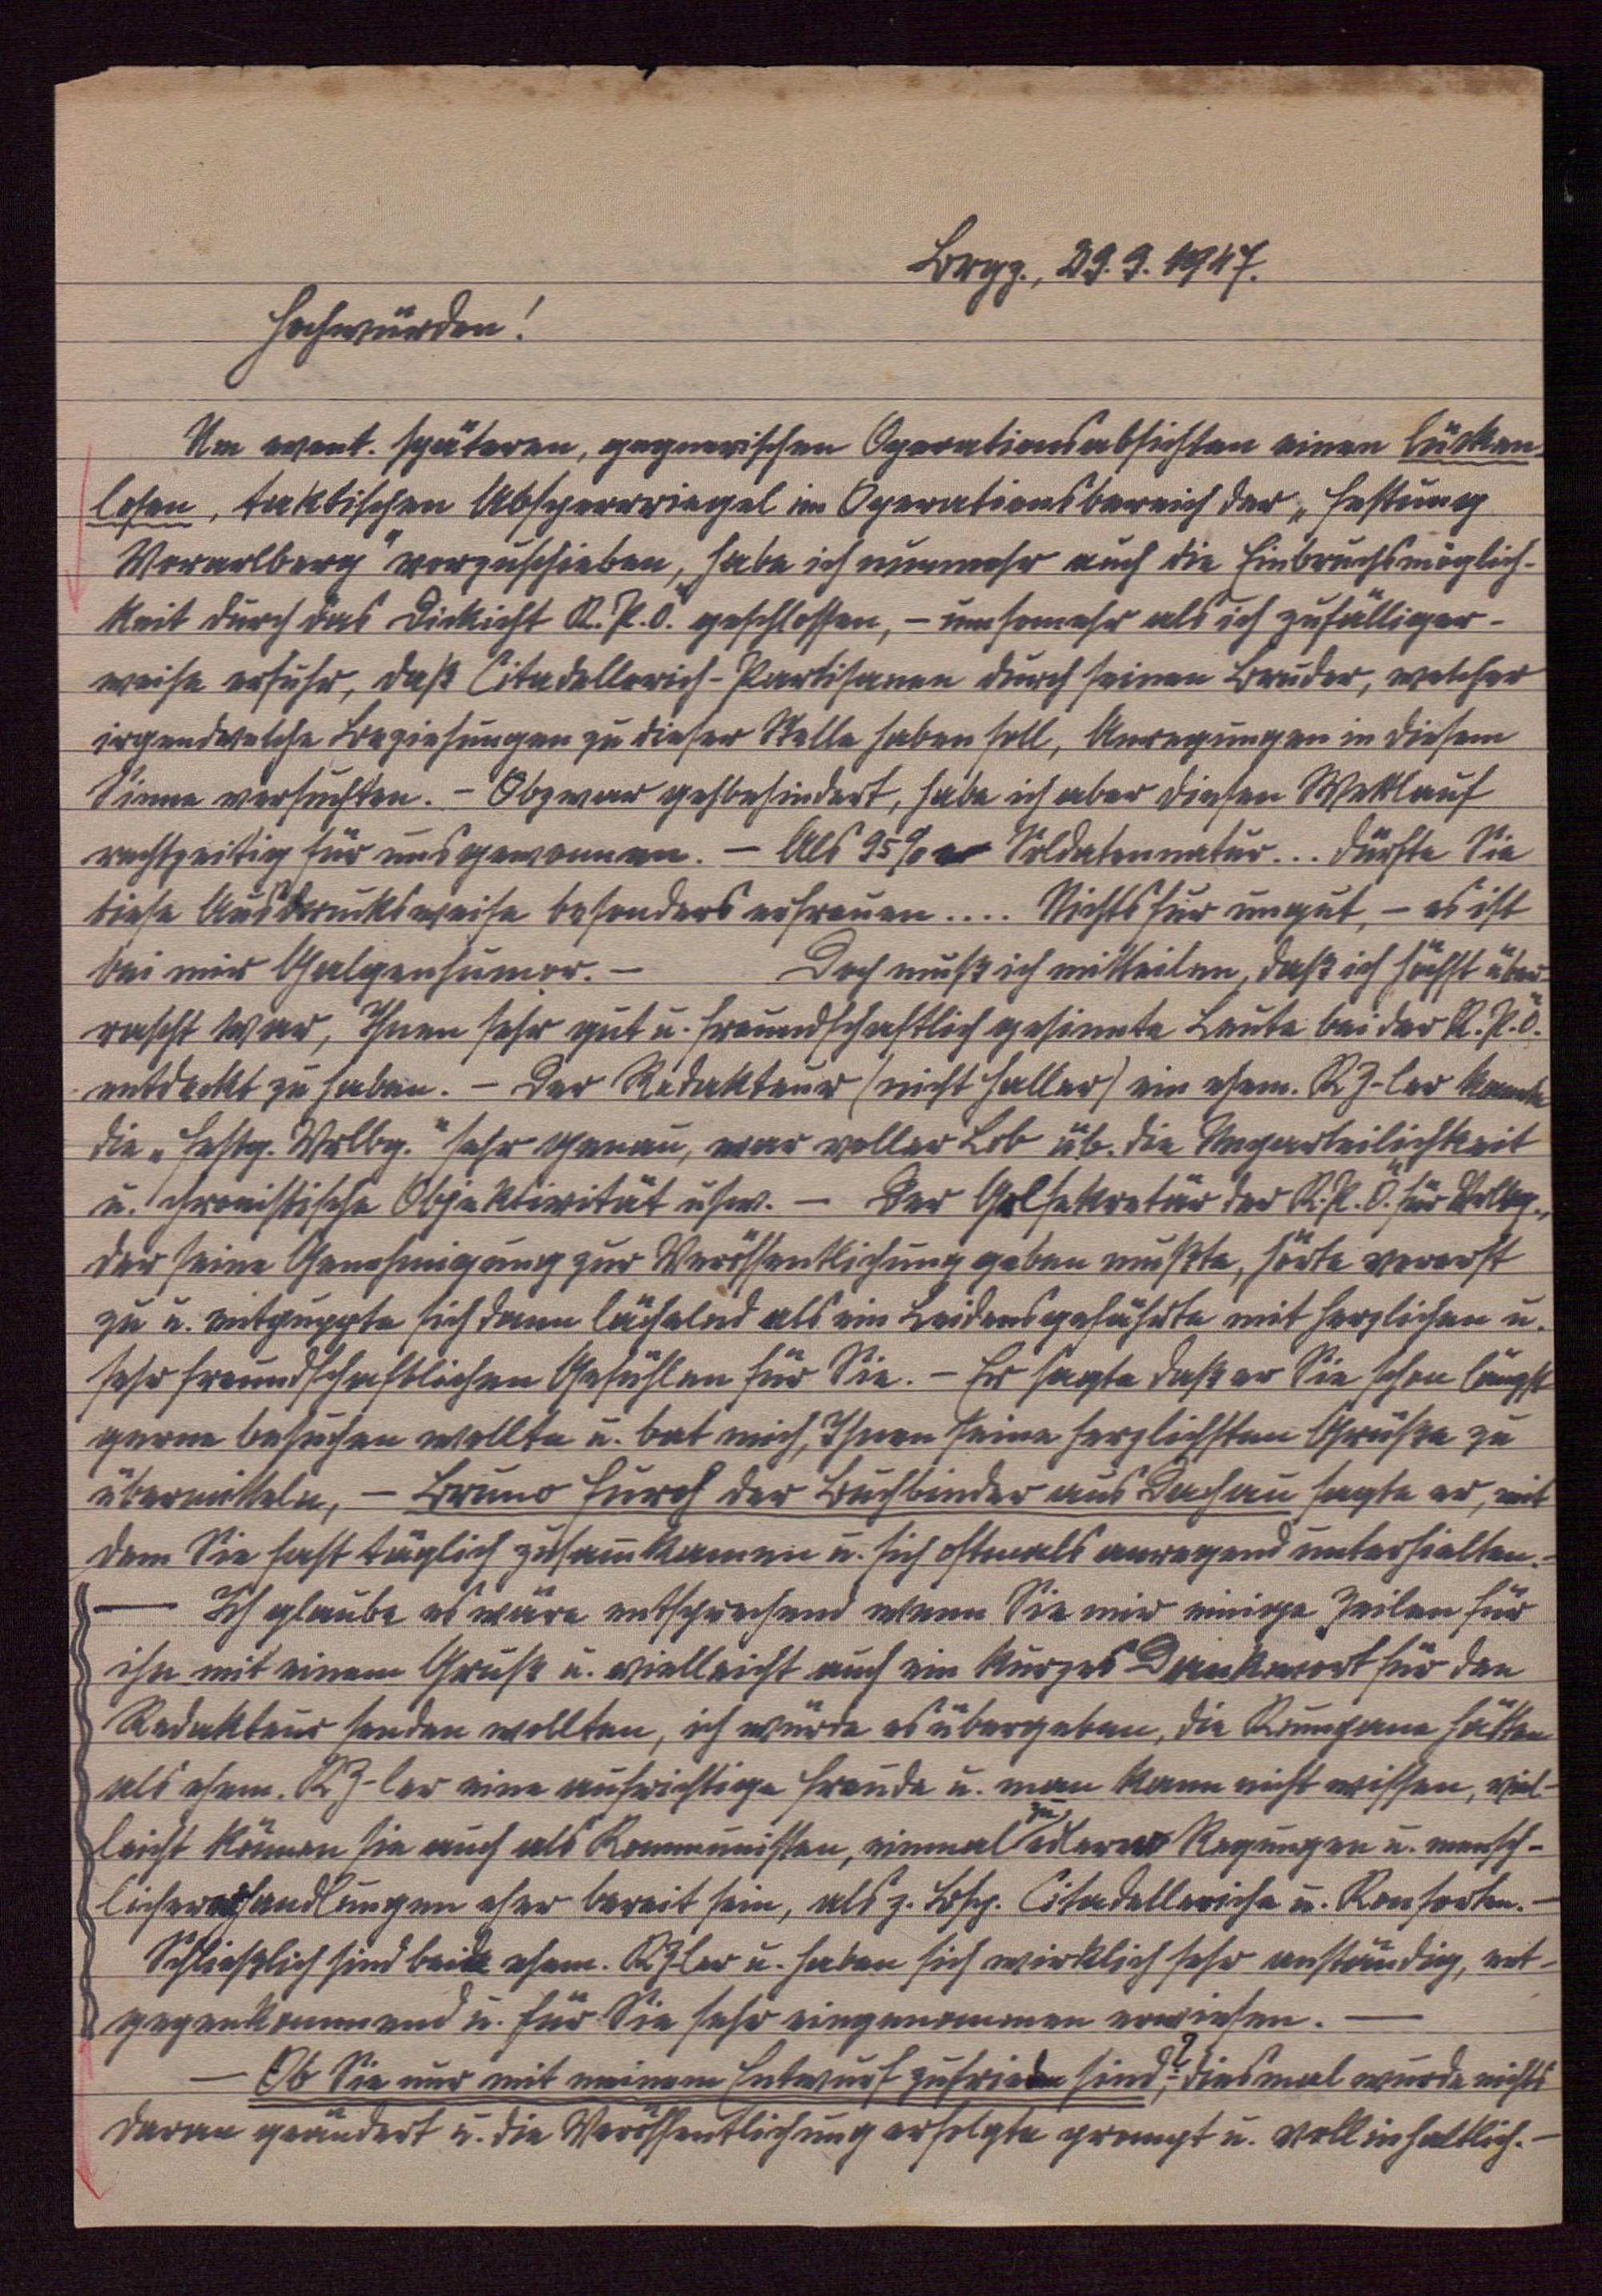 Brgz., 29.9.1947.
Hochwürden!
Um event. späteren, gegnerischen Operationsabsichten einen lücken-
losen, taktischen Absperrriegel im Operationsbereich der „Festung
Vorarlberg" vorzuschieben, habe ich nunmehr auch die Einbruchsmöglich-
keit durch das Dickicht K.P.Ö. geschlossen, – umsomehr als ich zufälliger-
weise erfuhr, daß Citadellerich-Partisanen durch seinen Bruder, welcher
irgendwelche Beziehungen zu dieser Stelle haben soll, Anregungen in diesem
Sinne versuchten. – Obzwar gehbehindert, habe ich aber diesen Wettlauf
rechtzeitig für uns gewonnen. – Als 95%e Soldatennatur... dürfte Sie
diese Ausdrucksweise besonders erfreuen.... Nichts für ungut, – es ist
bei mir Galgenhumor. – Doch muß ich mitteilen, daß ich höchst über-
rascht war, Ihnen sehr gut u. freundschaftlich gesinnte Leute bei der K.P.Ö.
entdeckt zu haben. – Der Redakteur (nicht Haller) ein ehem. KZ-ler kannte
die „Festg. Vrlbg." sehr genau, war voller Lob üb. die Unparteilichkeit
u. chronistische Objektivität usw. – Der Glsekretär der K.P.Ö. für Vrlbg.,
der seine Genehmigung zur Veröffentlichung geben mußte, hörte vorerst
zu u. entpuppte sich dann lächelnd als ein Leidensgefährte mit herzlichen u.
sehr freundschaftlichen Gefühlen für Sie. – Er sagte daß er Sie schon längst
gerne besuchen wollte u. bat mich, Ihnen seine herzlichsten Grüße zu
übermitteln, – Bruno Furch der Buchbinder aus Dachau sagte er, mit
dem Sie fast täglich zusammkamen u. sich oftmals anregend unterhielten. –
— Ich glaube es wäre entsprechend wenn Sie mir einige Zeilen für
ihn mit einem Gruß u. vielleicht auch ein kurzes Dankwort für den
Redakteur senden wollten, ich würde es übergeben, die Kumpane hätten
als ehem. KZ-ler eine aufrichtige Freude u. man kann nicht wissen, viel-
leicht können sie auch als Kommunisten, einmal zu edleren Regungen u. mensch-
licheren Handlungen eher bereit sein, als z. Bsp. Citadelleriche u. Konsorten. –
Schließlich sind beide ehem. KZler u. haben sich wirklich sehr anständig, ent-
gegenkommend u. für Sie sehr eingenommen erwiesen. —
– Ob Sie nur mit meinem Entwurf zufrieden sind?, – diesmal wurde nichts
daran geändert u. die Veröffentlichung erfolgte prompt u. vollinhaltlich. –